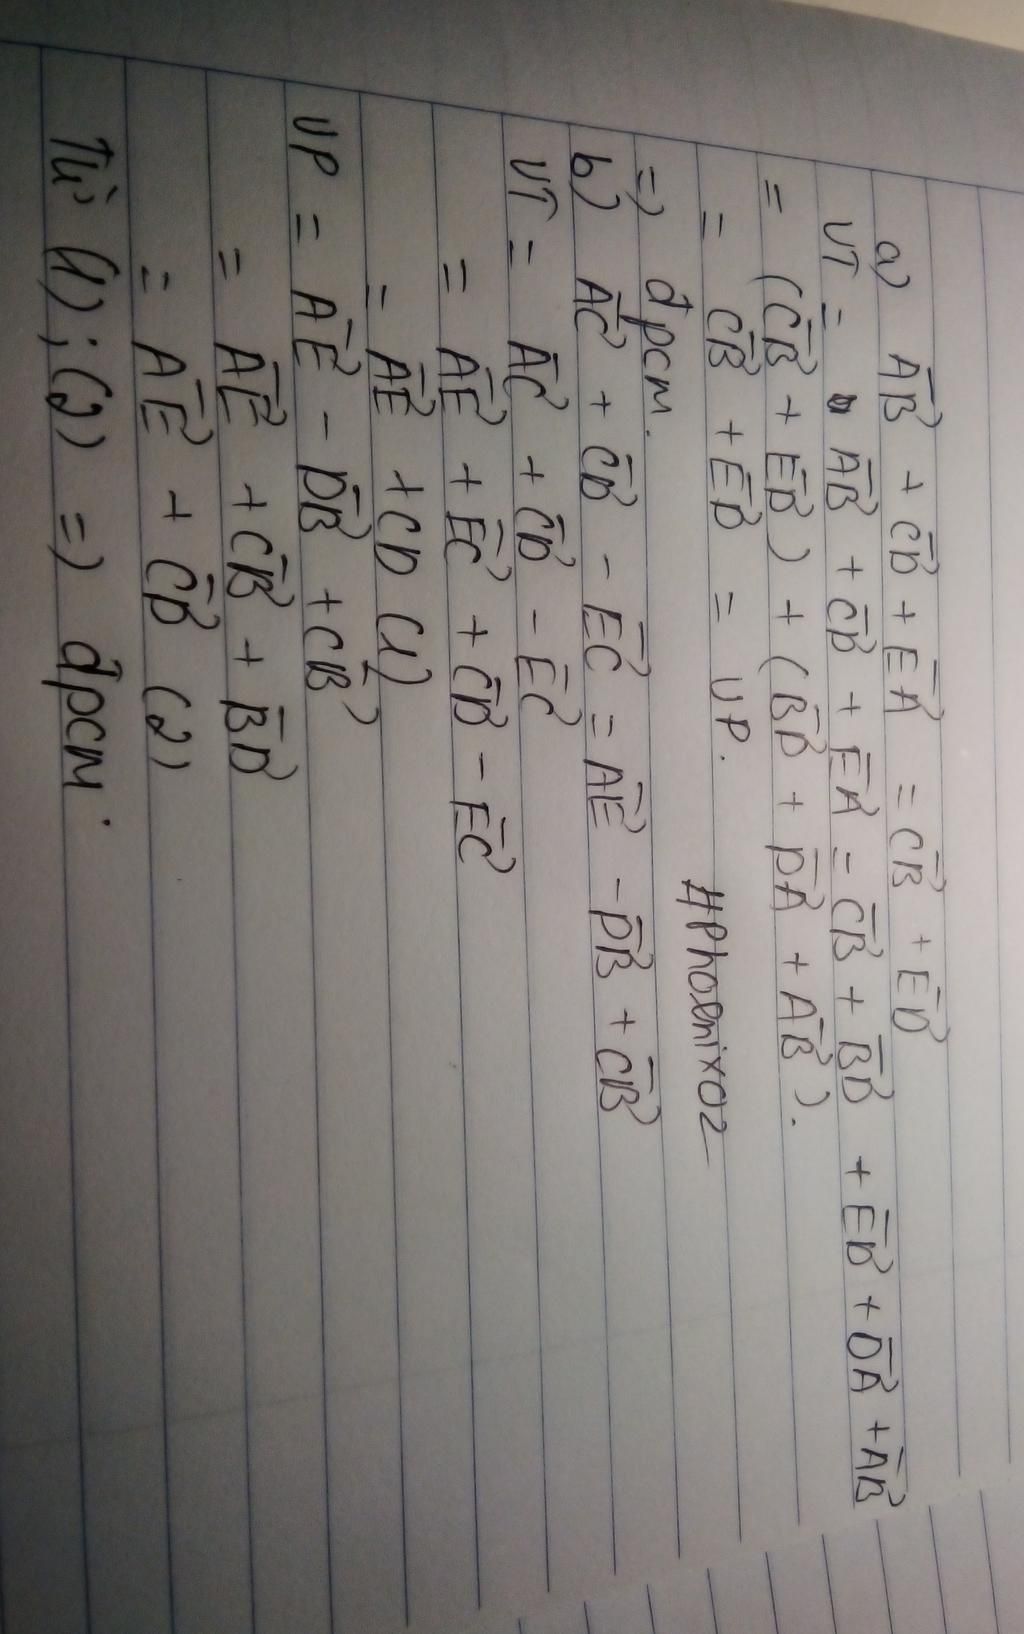 a) AB⃗ + CD⃗ + EA⃗ = CB⃗ + ED⃗
VT = AB⃗ + CD⃗ + EA⃗ = CB⃗ + BD⃗ + ED⃗ + DA⃗ + AB⃗
= (CB⃗ + ED⃗) + (BD⃗ + DA⃗ + AB⃗).
= CB⃗ + ED⃗ = VP.
#Phoenix02
=) đpcm.
b) AC⃗ + CD⃗ - EC⃗ = AE⃗ - DB⃗ + CB⃗
VT = AC⃗ + CD⃗ - EC⃗
= AE⃗ + EC⃗ + CD⃗ - EC⃗
= AE⃗ + CD (1)
VP = AE⃗ - DB⃗ + CB⃗
= AE⃗ + CB⃗ + BD⃗
= AE⃗ + CD⃗ (2)
Từ (1); (2) =) đpcm.